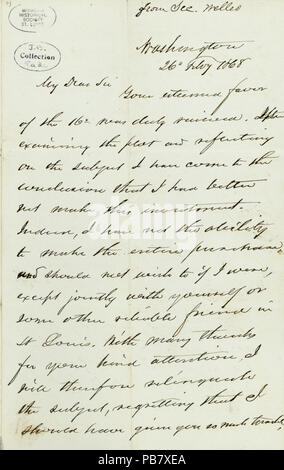 MISSOURI
HISTORICAL
SOCIETY
ST. LOUIS
from Sec. Welles
J.B.
Collection
Washington
26th Feby 1868
My Dear Sir
Your esteemed favor
of the 16th was duly received. After
examining the plat and reflecting
on the subject I have come to the
conclusion that I had better
not make this investment.
Indeed, I have not the ability
to make the entire purchase
and should not wish to if I were,
except jointly with yourself or
some other reliable friend in
St Louis. With many thanks
for your kind attention, I
will therefore relinquish
the subject, regretting that I
should have given you so much trouble,
alamy
PB7XEA